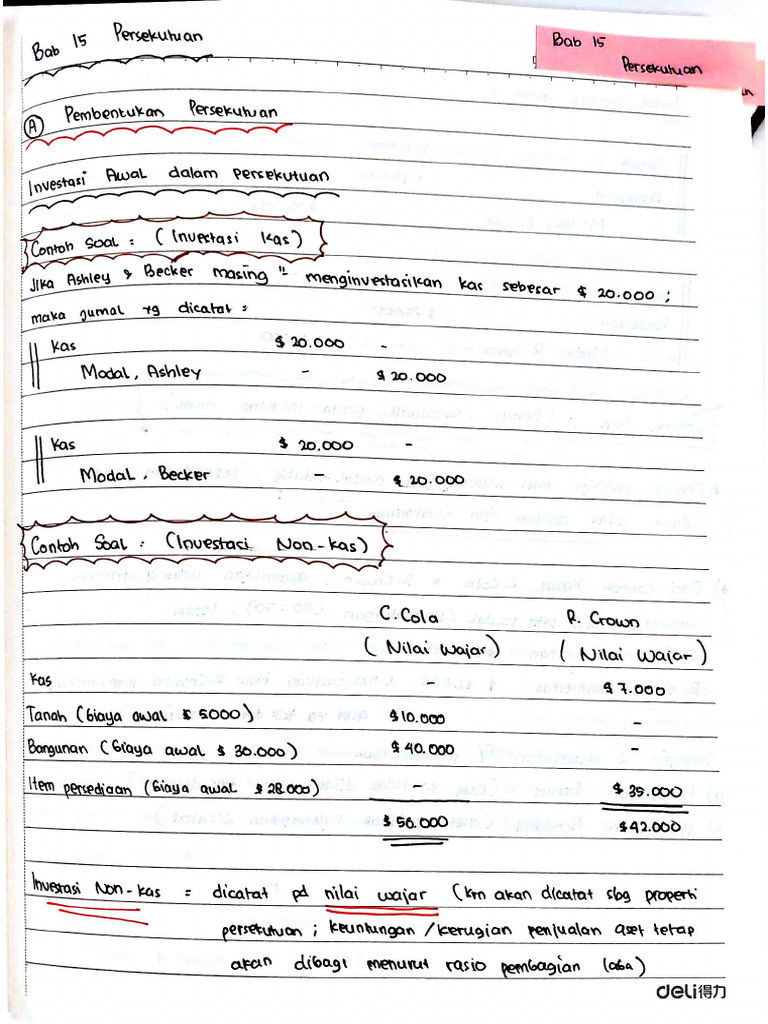 Bab 15 Persekutuan
Bab 15
Persekutuan
(A) Pembentukan Persekutuan
Investasi Awal dalam Persekutuan
Contoh Soal : (Investasi Kas)
Jika Ashley & Becker masing" menginvestasikan kas sebesar $ 20.000 ;
maka jurnal yg dicatat :
Kas $ 20.000 -
Modal, Ashley - $ 20.000
Kas $ 20.000 -
Modal, Becker - $ 20.000
Contoh Soal : (Investasi Non-kas)
C. Cola R. Crown
(Nilai Wajar) (Nilai Wajar)
Kas - $ 7.000
Tanah (Biaya awal $ 5000) $ 10.000 -
Bangunan (Biaya awal $ 30.000) $ 40.000 -
Item persediaan (Biaya awal $ 28.000) - $ 35.000
$ 50.000 $ 42.000
Investasi Non-kas = dicatat pd nilai wajar (krn akan dicatat sbg properti
persekutuan ; keuntungan/kerugian penjualan aset tetap
akan dibagi menurut rasio pembagian laba)
deli得力